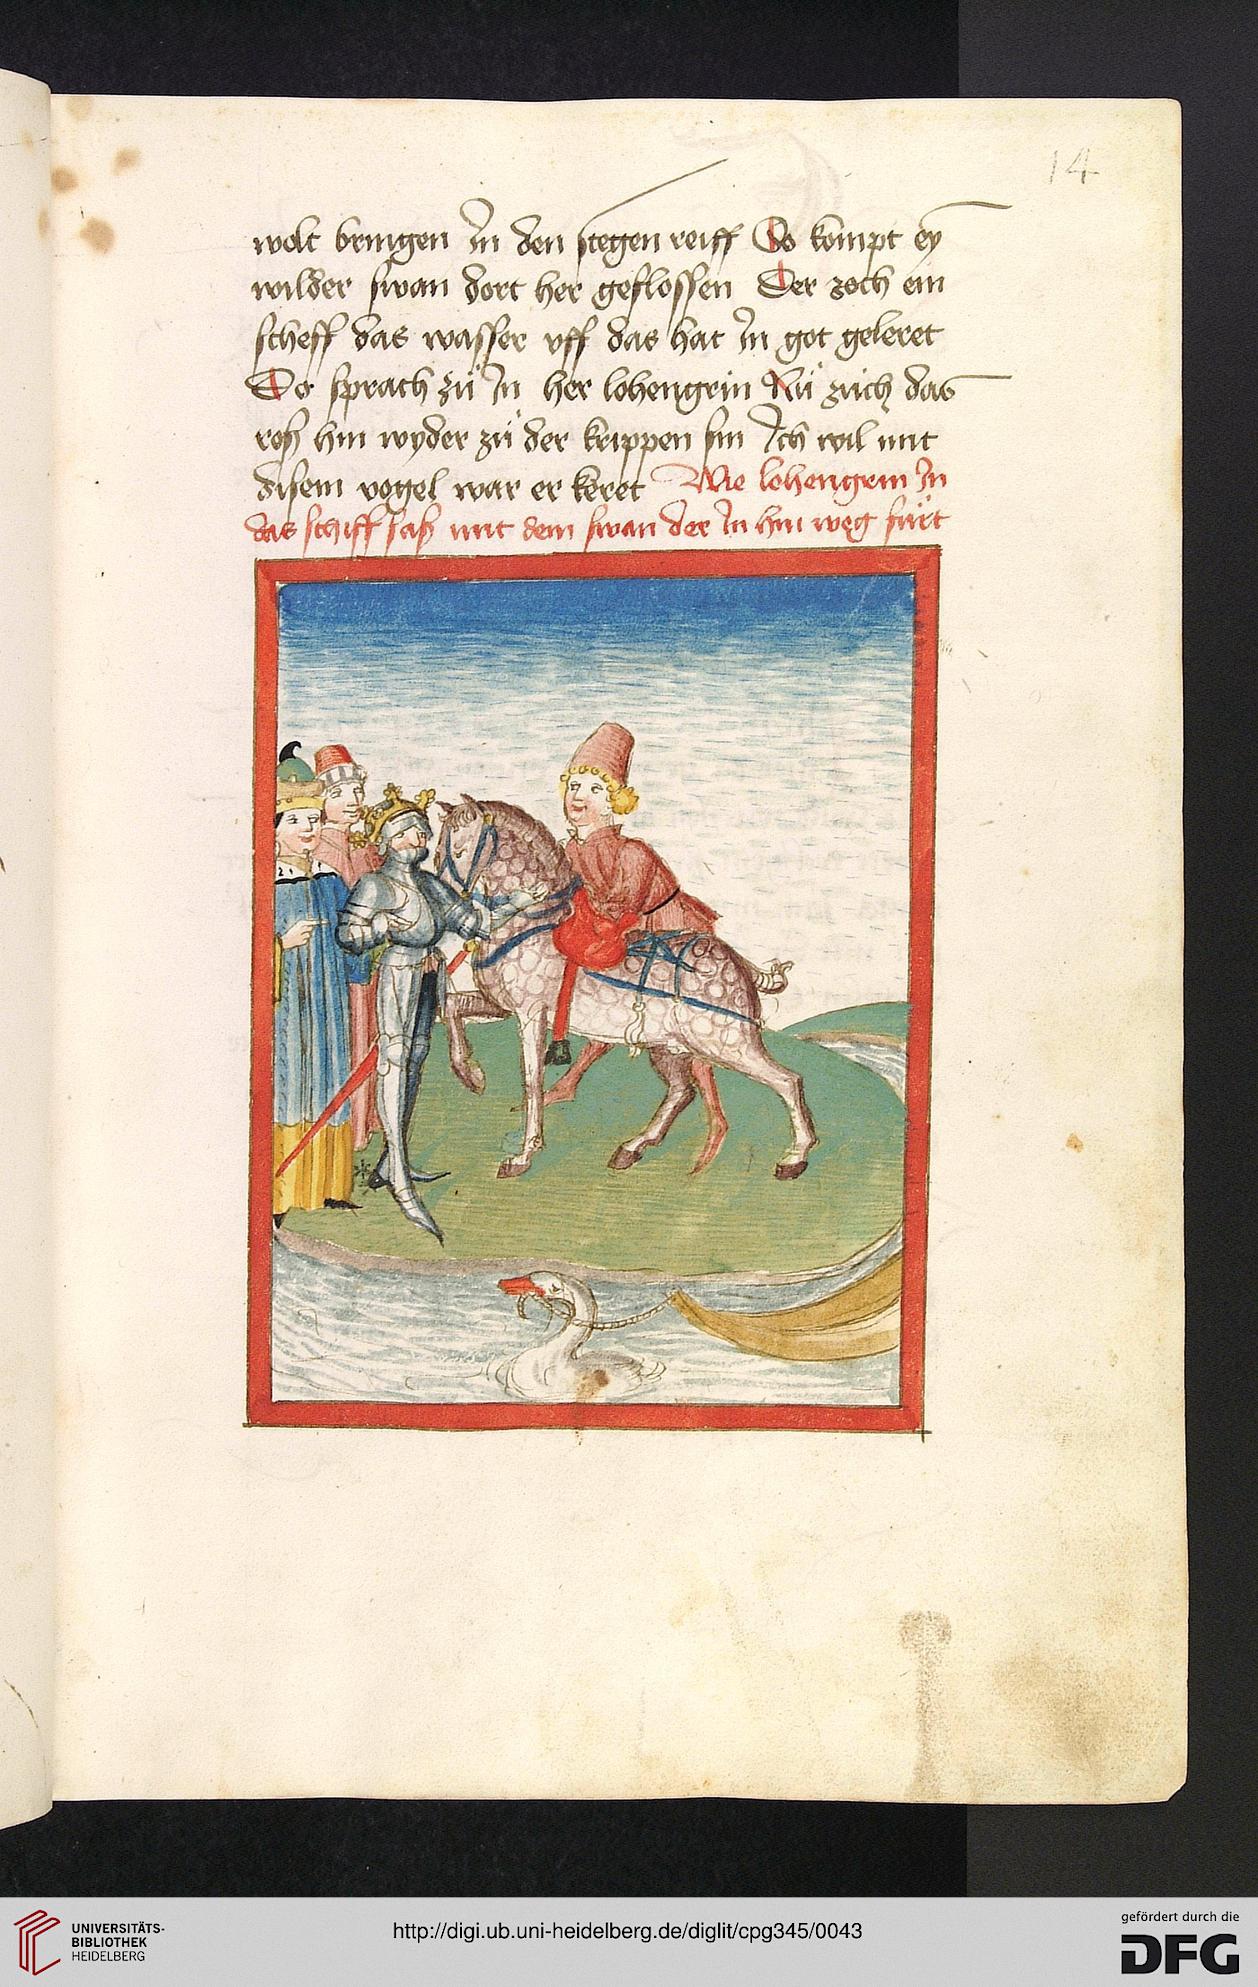 14
wolt bringen In den stegen reiff Do kompt ey
wilder swan dort her geflossen Der zoch ein
scheff das wasser vff das hat In got geleret
Do sprach zů In her lohengrin Nů zuch das
roß hin wyder zů der krippen sin Ich wil mit
disem vogel war er keret Wie lohengrin In
das schiff saß mit dem swan der In hin weg fůrt
UNIVERSITÄTS-
BIBLIOTHEK
HEIDELBERG
http://digi.ub.uni-heidelberg.de/diglit/cpg345/0043
gefördert durch die
DFG